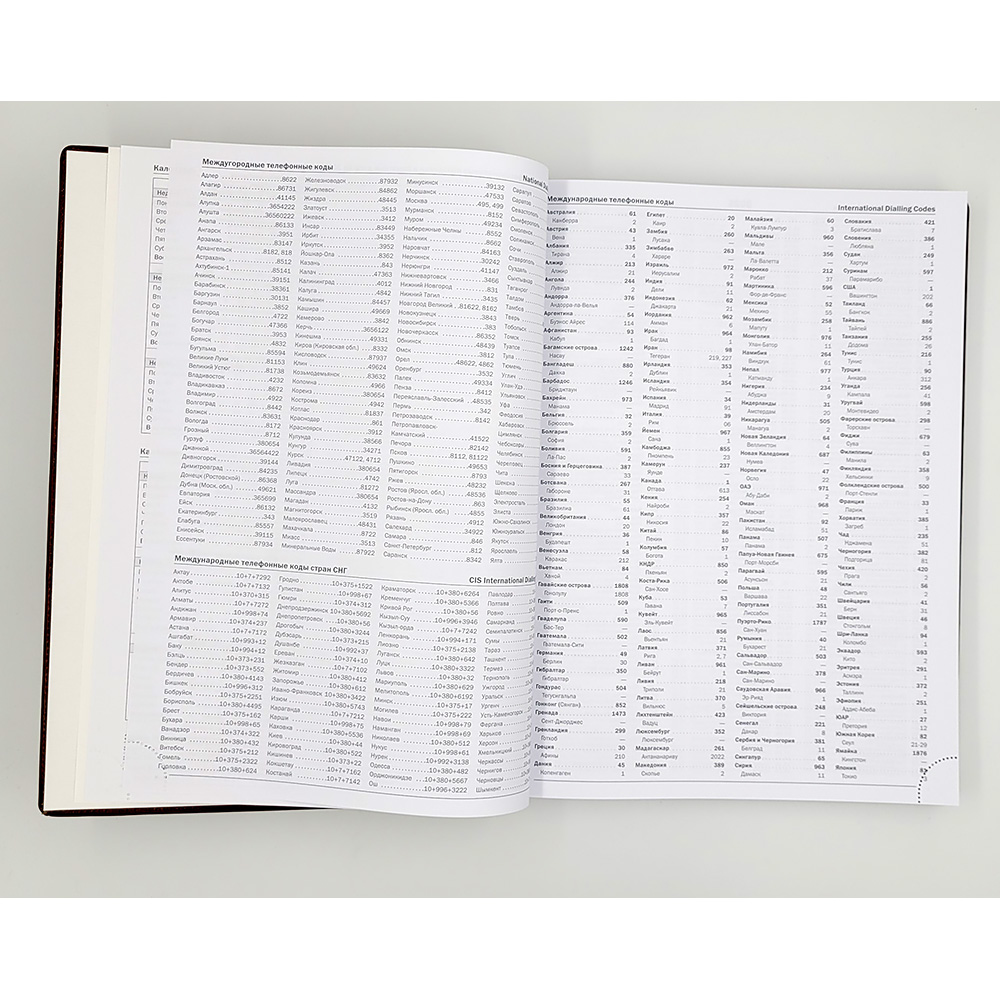 Кале
Нед
Междугородные телефонные коды
National Dia
Адлер .8622
Алагир .86731
Алдан .41145
Алупка .3654222
Алушта .36560222
Анапа .86133
Ангарск .3951
Арзамас .83147
Архангельск .8182, 818
Астрахань .8512
Ахтубинск-1 .85141
Ачинск .39151
Барабинск .38361
Баргузин .30131
Барнаул .3852
Белгород .4722
Богучар .47366
Братск .3953
Брянск .4832
Бугульма .85594
Великие Луки .81153
Великий Устюг .81738
Владивосток .4232
Владикавказ .8672
Владимир .4922
Волгоград .8442
Волжск .83631
Вологда .8172
Грозный .8712
Гурзуф .380654
Джанкой .36564422
Дивногорск .39144
Димитровград .84235
Донецк (Ростовской) .86368
Дубна (Моск. обл.) .49621
Евпатория .365699
Ейск .86132
Екатеринбург .343
Елабуга .85557
Енисейск .39115
Ессентуки .87934
Железноводск .87932
Жигулевск .84862
Жиздра .48445
Златоуст .3513
Ижевск .3412
Инсар .83449
Ирбит .34355
Иркутск .3952
Йошкар-Ола .8362
Казань .843
Калач .47363
Калининград .4012
Калуга .4842
Камышин .84457
Кашира .49669
Кемерово .3842
Керчь .3656122
Кинешма .49331
Киров (Кировская обл.) .8332
Кисловодск .87937
Клин .49624
Козьмодемьянск .83632
Коломна .4966
Кореиз .380654
Кострома .4942
Котлас .81837
Краснодар .861
Красноярск .3912
Кулунда .38566
Кунгур .34271
Курск .47122, 4712
Ливадия .380654
Липецк .4742
Луга .81272
Массандра .380654
Магадан .4132
Магнитогорск .3519
Малоярославец .48431
Махачкала .8722
Миасс .3513
Минеральные Воды .87922
Минусинск .39132
Моршанск .47533
Москва .495, 499
Мурманск .8152
Муром .49234
Набережные Челны .8552
Нальчик .8662
Наровчат .84163
Нерчинск .30242
Нерюнгри .41147
Нижневартовск .3466
Нижний Новгород .831
Нижний Тагил .3435
Новгород Великий .81622, 8162
Новокузнецк .3843
Новосибирск .383
Новочеркасск .86352
Обнинск .48439
Омск .3812
Орел .48622, 4862
Оренбург .3532
Палех .49334
Пенза .8412
Переяславль-Залесский .48535
Пермь .342
Петрозаводск .8142
Петропавловск-
Камчатский .41522
Печора .82142
Псков .8112, 81122
Пушкино .49653
Пятигорск .8793
Ржев .48232
Ростов (Яросл. обл.) .48536
Ростов-на-Дону .863
Рыбинск (Яросл. обл.) .4855
Рязань .4912
Салехард .34922
Самара .846
Санкт-Петербург .812
Саранск .8342
Сарапул
Саратов
Севастополь
Симферополь
Смоленск
Соликамск
Сочи
Ставрополь
Суздаль
Сыктывкар
Таганрог
Талдом
Тамбов
Тверь
Тобольск
Томск
Туапсе
Тула
Тюмень
Углич
Улан-Удэ
Ульяновск
Уфа
Феодосия
Хабаровск
Цимлянск
Чебоксары
Челябинск
Череповец
Чита
Шекснa
Щелково
Электросталь
Элиста
Южно-Сахалинск
Южноуральск
Якутск
Ярославль
Ялта
Международные телефонные коды стран СНГ
CIS International Dialling
Актау .10+7+7292
Актобе .10+7+7132
Алитус .10+370+315
Алматы .10+7+7272
Андижан .10+998+74
Армавир .10+374+237
Астана .10+7+7172
Ашгабат .10+993+12
Баку .10+994+12
Бэлць .10+373+231
Бендер .10+373+552
Бердичев .10+380+4143
Бишкек .10+996+312
Бобруйск .10+375+2251
Борисполь .10+380+4495
Брест .10+375+162
Бухара .10+998+65
Ванадзор .10+374+322
Винница .10+380+432
Витебск .10+375+212
Гомель .10+375+2322
Горловка .10+380+624
Гродно .10+375+1522
Гулистан .10+998+67
Гюмри .10+374+312
Днепродзержинск .10+380+5692
Днепропетровск .10+380+56
Дрогобыч .10+380+3244
Дубэсарь .10+373+215
Душанбе .10+992+37
Ереван .10+374+10
Жезказган .10+7+7102
Житомир .10+380+412
Запорожье .10+380+612
Ивано-Франковск .10+380+3422
Изюм .10+380+5743
Караганда .10+7+7212
Карши .10+998+75
Каховка .10+380+5536
Киев .10+380+44
Кировоград .10+380+522
Кишинев .10+373+22
Кокшетау .10+7+7162
Костанай .10+7+7142
Краматорск .10+380+6264
Кременчуг .10+380+5366
Кривой Рог .10+380+56
Кызыл-Суу .10+996+3946
Кызыл-орда .10+7+7242
Ленкорань .10+994+171
Лиозно .10+375+2138
Луганск .10+380+642
Луцк .10+380+3322
Львов .10+380+32
Мариуполь .10+380+629
Мелитополь .10+380+6192
Минск .10+375+17
Могилев .10+375+222
Навои .10+998+79
Наманган .10+998+69
Николаев .10+380+512
Нукус .10+998+61
Нурек .10+992+3138
Одесса .10+380+482
Орджоникидзе .10+380+5667
Ош .10+996+3222
Павлодар
Полтава
Ровно
Самарканд
Семипалатинск
Сумы
Тараз
Ташкент
Термез
Тернополь
Ужгород
Уральск
Ургенч
Усть-Каменогорск
Ферганa
Харьков
Херсон
Хмельницкий
Черкассы
Чернигов
Черновцы
Шымкент
Международные телефонные коды
International Dialling Codes
Австралия 61
Канберра 2
Австрия 43
Вена 1
Албания 335
Тирана 4
Алжир 213
Алжир 21
Ангола 244
Луанда 2
Андорра 376
Андорра-ла-Велья —
Аргентина 54
Буэнос Айрес 114
Афганистан 93
Кабул 1
Багамские острова 1242
Насау —
Бангладеш 880
Дакка 2
Барбадос 1246
Бриджтаун —
Бахрейн 973
Манама —
Бельгия 32
Брюссель 2
Болгария 359
София 2
Боливия 591
Ла-Пас 2
Босния и Герцеговина 387
Сараево 33
Ботсвана 267
Габороне 31
Бразилия 55
Бразилиа 61
Великобритания 44
Лондон 20
Венгрия 36
Будапешт 1
Венесуэла 58
Каракас 212
Вьетнам 84
Ханой 4
Гавайские острова 1808
Гонолулу 1808
Гаити 509
Порт-о-Пренс 1
Гваделупа 590
Бас-Тер —
Гватемала 502
Гватемала-Сити —
Германия 49
Берлин 30
Гибралтар 350
Гибралтар —
Гондурас 504
Тегусигальпа —
Гонконг (Сянган) 852
Гренада 1473
Сент-Джорджес —
Гренландия 299
Готхоб —
Греция 30
Афины 210
Дания 45
Копенгаген 1
Египет 20
Каир 2
Замбия 260
Лусака 1
Зимбабве 263
Хараре 4
Израиль 972
Иерусалим 2
Индия 91
Дели 11
Индонезия 62
Джакарта 21
Иордания 962
Амман 6
Ирак 964
Багдад 1
Иран 98
Тегеран 219,227
Ирландия 353
Дублин 1
Исландия 354
Рейкьявик —
Испания 34
Мадрид 91
Италия 39
Рим 06
Йемен 967
Сана 1
Камбоджа 855
Пномпень 23
Камерун 237
Яунде —
Канада 1
Оттава 613
Кения 254
Найроби 2
Кипр 357
Никосия 22
Китай 86
Пекин 10
Колумбия 57
Богота 1
КНДР 850
Пхеньян 2
Коста-Рика 506
Сан Хосе —
Куба 53
Гавана 7
Кувейт 965
Эль-Кувейт —
Лаос 856
Вьентьян 21
Латвия 371
Рига 2,7
Ливан 961
Бейрут 1
Ливия 218
Триполи 21
Литва 370
Вильнюс 5
Лихтенштейн 423
Вадуц —
Люксембург 352
Люксембург —
Мадагаскар 261
Антананариву 2022
Македония 389
Скопье 2
Малайзия 60
Куала-Лумпур 3
Мальдивы 960
Мале —
Мальта 356
Ла-Валетта —
Марокко 212
Рабат 37
Мартиника 596
Фор-де-Франс —
Мексика 52
Мехико 55
Мозамбик 258
Мапуту 1
Монголия 976
Улан-Батор 11
Намибия 264
Виндхук 61
Непал 977
Катманду 1
Нигерия 234
Абуджа 9
Нидерланды 31
Амстердам 20
Никарагуа 505
Манагуа 2
Новая Зеландия 64
Веллингтон 4
Новая Каледония 687
Нумеа —
Норвегия 47
Осло 22
ОАЭ 971
Абу-Даби 2
Оман 968
Маскат —
Пакистан 92
Исламабад 51
Панама 507
Панама 2
Папуа-Новая Гвинея 675
Порт-Морсби —
Парагвай 595
Асунсьон 21
Польша 48
Варшава 22
Португалия 351
Лиссабон 21
Пуэрто-Рико 1787
Сан-Хуан —
Румыния 40
Бухарест 21
Сальвадор 503
Сан-Сальвадор —
Сан-Марино 378
Сан-Марино —
Саудовская Аравия 966
Эр-Рияд 1
Сейшельские острова 248
Виктория —
Сенегал 221
Дакар 8
Сербия и Черногория 381
Белград 11
Сингапур 65
Сирия 963
Дамаск 11
Словакия 421
Братислава 7
Словения 386
Любляна 1
Судан 249
Хартум 1
Суринам 597
Парамарибо —
США 1
Вашингтон 202
Таиланд 66
Бангкок 2
Тайвань 886
Тайпей 2
Танзания 255
Додома 26
Тунис 216
Тунис 1
Турция 90
Анкара 312
Уганда 256
Кампала 41
Уругвай 598
Монтевидео 2
Фарерские острова 298
Торсхавн —
Фиджи 679
Сува —
Филиппины 63
Манила 2
Финляндия 358
Хельсинки 9
Фолклендские острова 500
Порт-Стенли —
Франция 33
Париж 1
Хорватия 385
Загреб 1
Чад 235
Нджамена 51
Черногория 382
Подгорица 81
Чехия 420
Прага 2
Чили 56
Сантьяго 2
Швейцария 41
Берн 31
Швеция 46
Стокгольм 8
Шри-Ланка 94
Коломбо 1
Эквадор 593
Кито 2
Эритрея 291
Асмэра 1
Эстония 372
Таллинн 6
Эфиопия 251
Аддис-Абеба 1
ЮАР 27
Претория 12
Южная Корея 82
Сеул 21-29
Ямайка 1876
Кингстон —
Япония 81
Токио 3